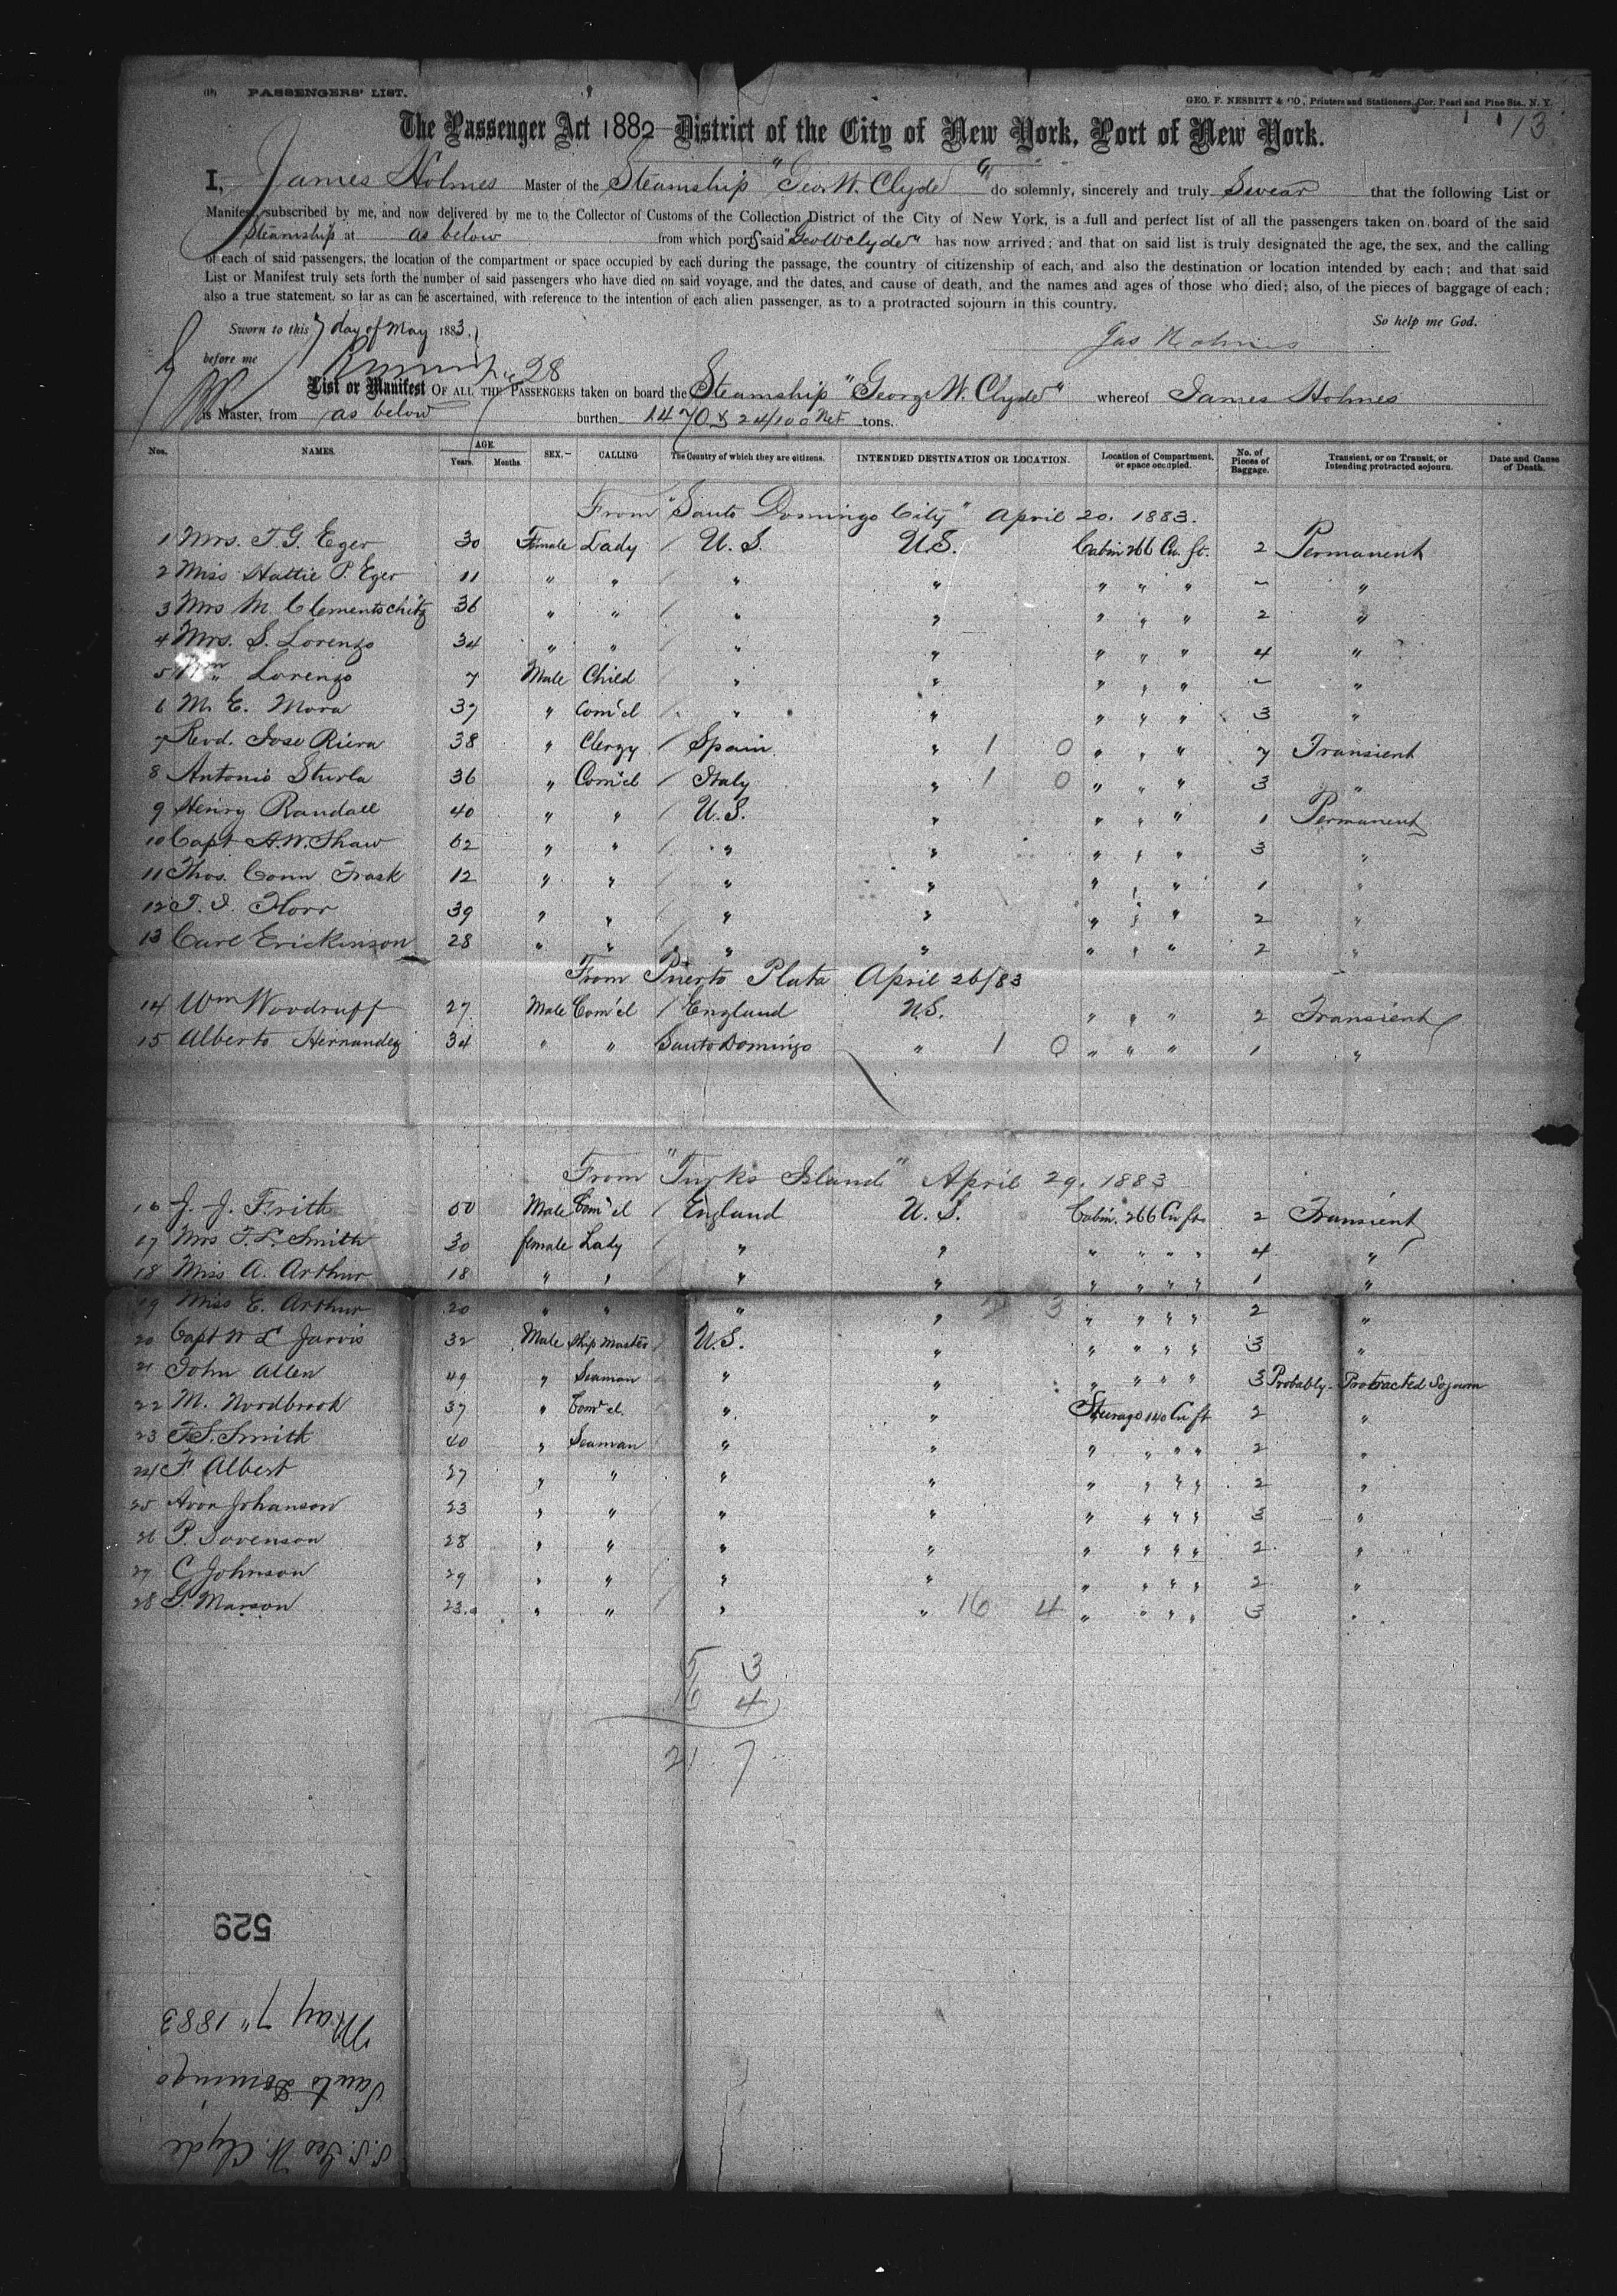 (18) PASSENGERS' LIST.
GEO. F. NESBITT & CO., Printers and Stationers, Cor. Pearl and Pine Sts., N. Y.
13
The Passenger Act 1882 District of the City of New York, Port of New York.
I, James Holmes Master of the Steamship "Geo. W. Clyde" do solemnly, sincerely and truly Swear that the following List or
Manifest, subscribed by me, and now delivered by me to the Collector of Customs of the Collection District of the City of New York, is a full and perfect list of all the passengers taken on board of the said
Steamship at as below from which port said "Geo W Clyde" has now arrived; and that on said list is truly designated the age, the sex, and the calling
of each of said passengers, the location of the compartment or space occupied by each during the passage, the country of citizenship of each, and also the destination or location intended by each; and that said
List or Manifest truly sets forth the number of said passengers who have died on said voyage, and the dates, and cause of death, and the names and ages of those who died; also, of the pieces of baggage of each;
also a true statement, so far as can be ascertained, with reference to the intention of each alien passenger, as to a protracted sojourn in this country.
So help me God.
Sworn to this 7 day of May 1883.
Jas Holmes
before me
28
List or Manifest OF ALL THE PASSENGERS taken on board the Steamship "George W. Clyde" whereof James Holmes
is Master, from as below burthen 1470 & 24/100 Net tons.
Nos. NAMES. AGE. Years. Months. SEX. CALLING The Country of which they are citizens. INTENDED DESTINATION OR LOCATION. Location of Compartment, or space occupied. No. of Pieces of Baggage. Transient, or on Transit, or Intending protracted sojourn. Date and Cause of Death.
From "Santo Domingo City" April 20. 1883.
1 Mrs. T. G. Eger 30 Female Lady / U. S. U.S. Cabin 266 Cu. ft. 2 Permanent
2 Miss Hattie P. Eger 11 " " / " " " " " ~ "
3 Mrs M. Clementschitz 36 " " / " " " " " 2 "
4 Mrs. S. Lorenzo 34 " " / " " " " " 4 "
5 " Lorenzo 7 Male Child / " " " " " ~ "
6 M. E. Mora 37 " Com'cl / " " " " " 3 "
7 Revd. Jose Riera 38 " Clergy / Spain " 1 0 " " " 7 Transient
8 Antonio Sturla 36 " Com'cl / Italy " 1 0 " " " 3 "
9 Henry Randall 40 " " / U.S. " " " " 1 Permanent
10 Capt A. W. Shaw 62 " " / " " " " " 3 "
11 Thos. Conn Trask 12 " " / " " " " " 1 "
12 T. I. Horr 39 " " / " " " " " 2 "
13 Carl Erickinson 28 " " / " " " " " 2 "
From Puerto Plata April 26/83
14 Wm Woodruff 27 Male Com'cl / England U.S. " " " 2 Transient
15 Alberto Hernandez 34 " " Santo Domingo " 1 0 " " " 1 "
From "Turks Island" April 29. 1883
16 J. J. Frith 50 Male Com'cl / England U. S. Cabin. 266 Cu ft 2 Transient
17 Mrs F. L. Smith 30 female Lady / " " " " " " 4 "
18 Miss A. Arthur 18 " " / " " " " " " 1 "
19 Miss E. Arthur 20 " " " " 3 " " " " 2 "
20 Capt W L Jarvis 32 Male Ship Master / U.S. " " " " " 3 "
21 John Allen 49 " Seaman " " " " " " 3 Probably Protracted Sojourn
22 M. Nordbrook 37 " Com'cl. " " Steerage 140 Cu ft 2 "
23 F. S. Smith 40 " Seaman " " " " " " 2 "
24 F Albert 27 " " " " " " " " 2 "
25 Johanson 23 " " / " " " " " " 3 "
26 P. Sorenson 28 " " / " " " " " " 2 "
27 C Johnson 29 " " / " " " " " " 2 "
28 G. Marson 23 " " / " " 16 4 " " " " 3 "
5 3
16 4
21 7
529
May 7" 1883
Santo Domingo
S.S. Geo W. Clyde